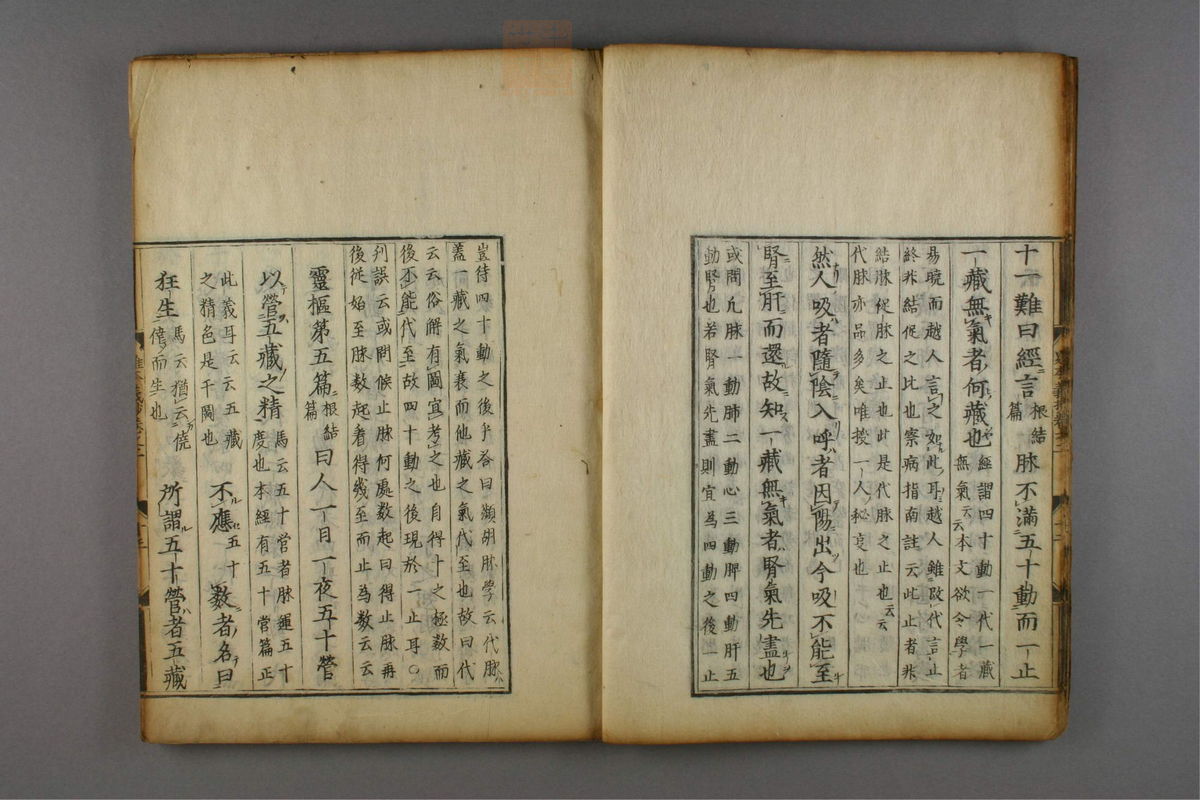 十一難曰經言根結篇脉不滿五十動而一止
一藏無氣者何藏也經謂四十動一代一藏
無氣云云本文欲令學者
易曉而越人言之如此耳越人雖改代言止
終非結促之比也察病指南註云此止者非
結脉促脉之止也此是代脉之止也云云
代脉亦品多矣唯授一人秘㕝也
然人吸者隨陰入呼者因陽出今吸不能至
腎至肝而還故知一藏無氣者腎氣先盡也
或問凢脉一動肺二動心三動脾四動肝五
動腎也若腎氣先盡則宜為四動之後一止
豈待四十動之後乎答曰瀕胡脉學云代脉
蓋一藏之氣衰而他藏之氣代至也故曰代
云云俗解有圖宜考之也自得十之極数而
後不能代至故四十動之後現於一止耳○
刋誤云或問候止脉何處数起曰得止脉再
後從始至脉数起看得幾至而止為数云云
靈樞第五篇根結篇曰人一日一夜五十營
以營五藏之精馬云五十營者脉運五十
度也本經有五十營篇正
此義耳云云五藏
之精色是干閱也
不應五十數者名曰
狂生馬云猶云僥
倖而生也
所謂五十營者五藏